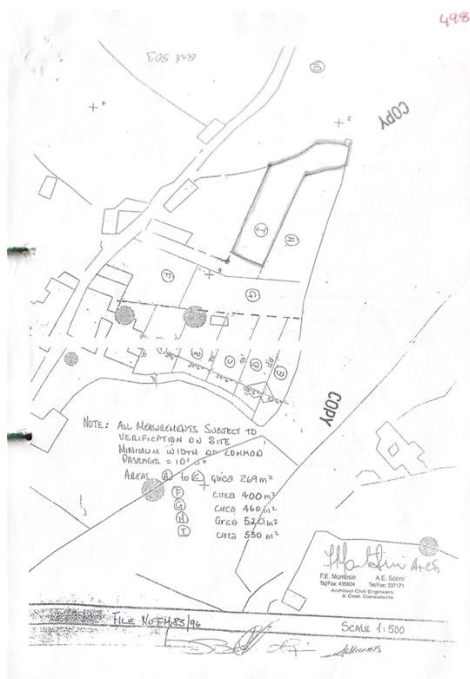 498
COPY
I
H
F
G
B
C
D
E
COPY
NOTE: ALL MEASUREMENTS SUBJECT TO
VERIFICATION ON SITE
MINIMUM WIDTH OF COMMON
PASSAGE = 10'0"
AREAS A to E circa 269 m²
F circa 400 m²
G circa 460 m²
H circa 520 m²
I circa 530 m²
A+CE
F.E. Montesin A.E. Scerri
Architect Civil Engineers
& Cost Consultants
FILE NO FM83/96
SCALE 1:500